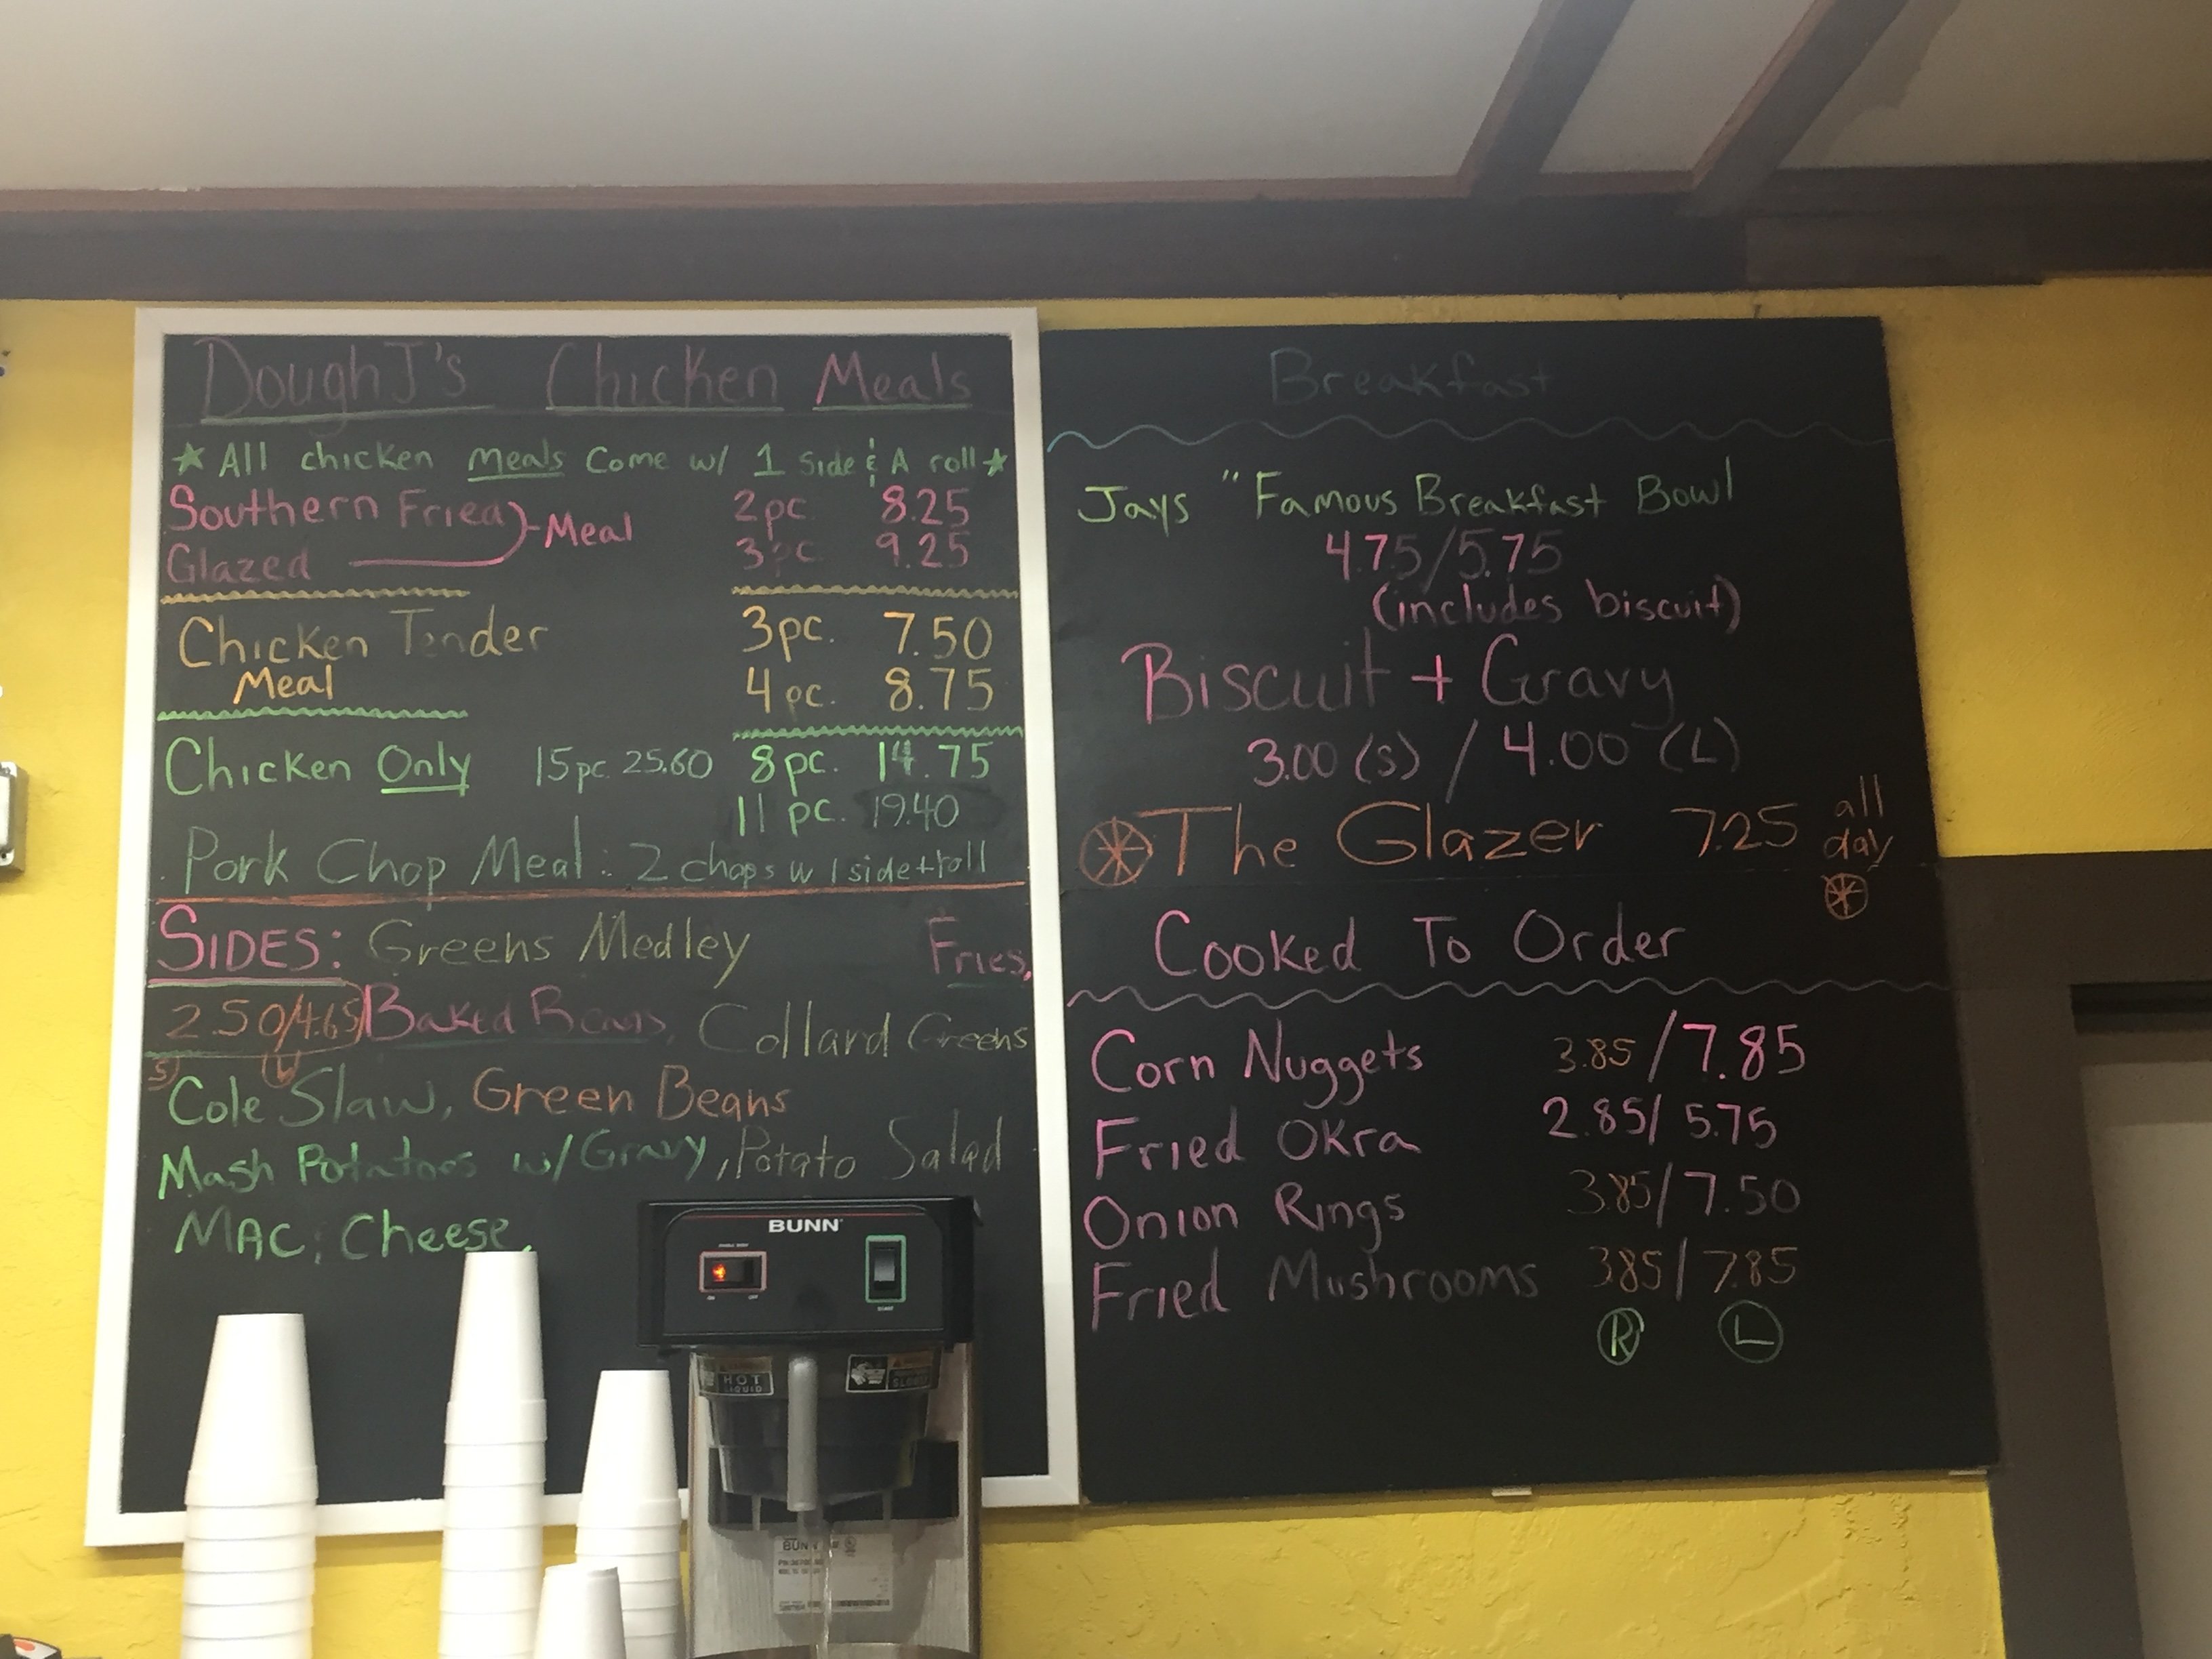 DoughJ's Chicken Meals
★ All chicken meals Come w/ 1 Side & A roll ★
Southern Fried
Glazed
Meal
2pc. 8.25
3pc. 9.25
Chicken Tender
Meal
3pc. 7.50
4pc. 8.75
Chicken Only 15pc. 25.60 8pc. 14.75
11 pc. 19.40
Pork Chop Meal: 2 chops w/ 1 side + roll
SIDES: Greens Medley Fries,
2.50/4.65 Baked Beans, Collard Greens
S L
Cole Slaw, Green Beans
Mash Potatoes w/ Gravy, Potato Salad
MAC & Cheese,
Breakfast
Jays "Famous Breakfast Bowl
4.75/5.75
(includes biscuit)
Biscuit + Gravy
3.00 (S) / 4.00 (L)
The Glazer 7.25 all day
Cooked To Order
Corn Nuggets 3.85/7.85
Fried Okra 2.85/5.75
Onion Rings 3.85/7.50
Fried Mushrooms 3.85/7.85
R L
BUNN
HOT
LIQUID
BUNN